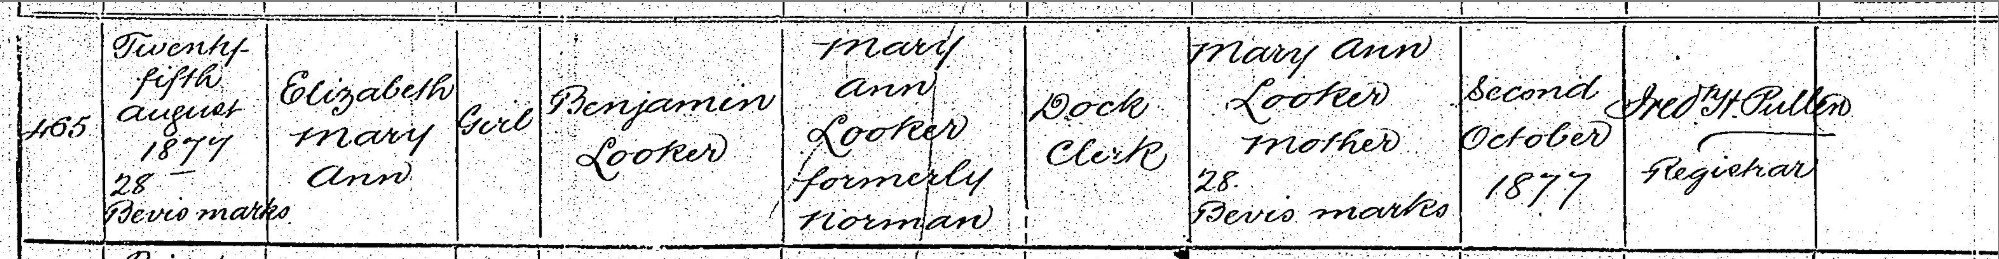 465
Twenty-
fifth
August
1877
28
Bevis marks
Elizabeth
Mary
Ann
Girl
Benjamin
Looker
Mary
Ann
Looker
formerly
Norman
Dock
Clerk
Mary Ann
Looker
Mother
28.
Bevis marks
Second
October
1877
Fred. H. Pullen
Registrar